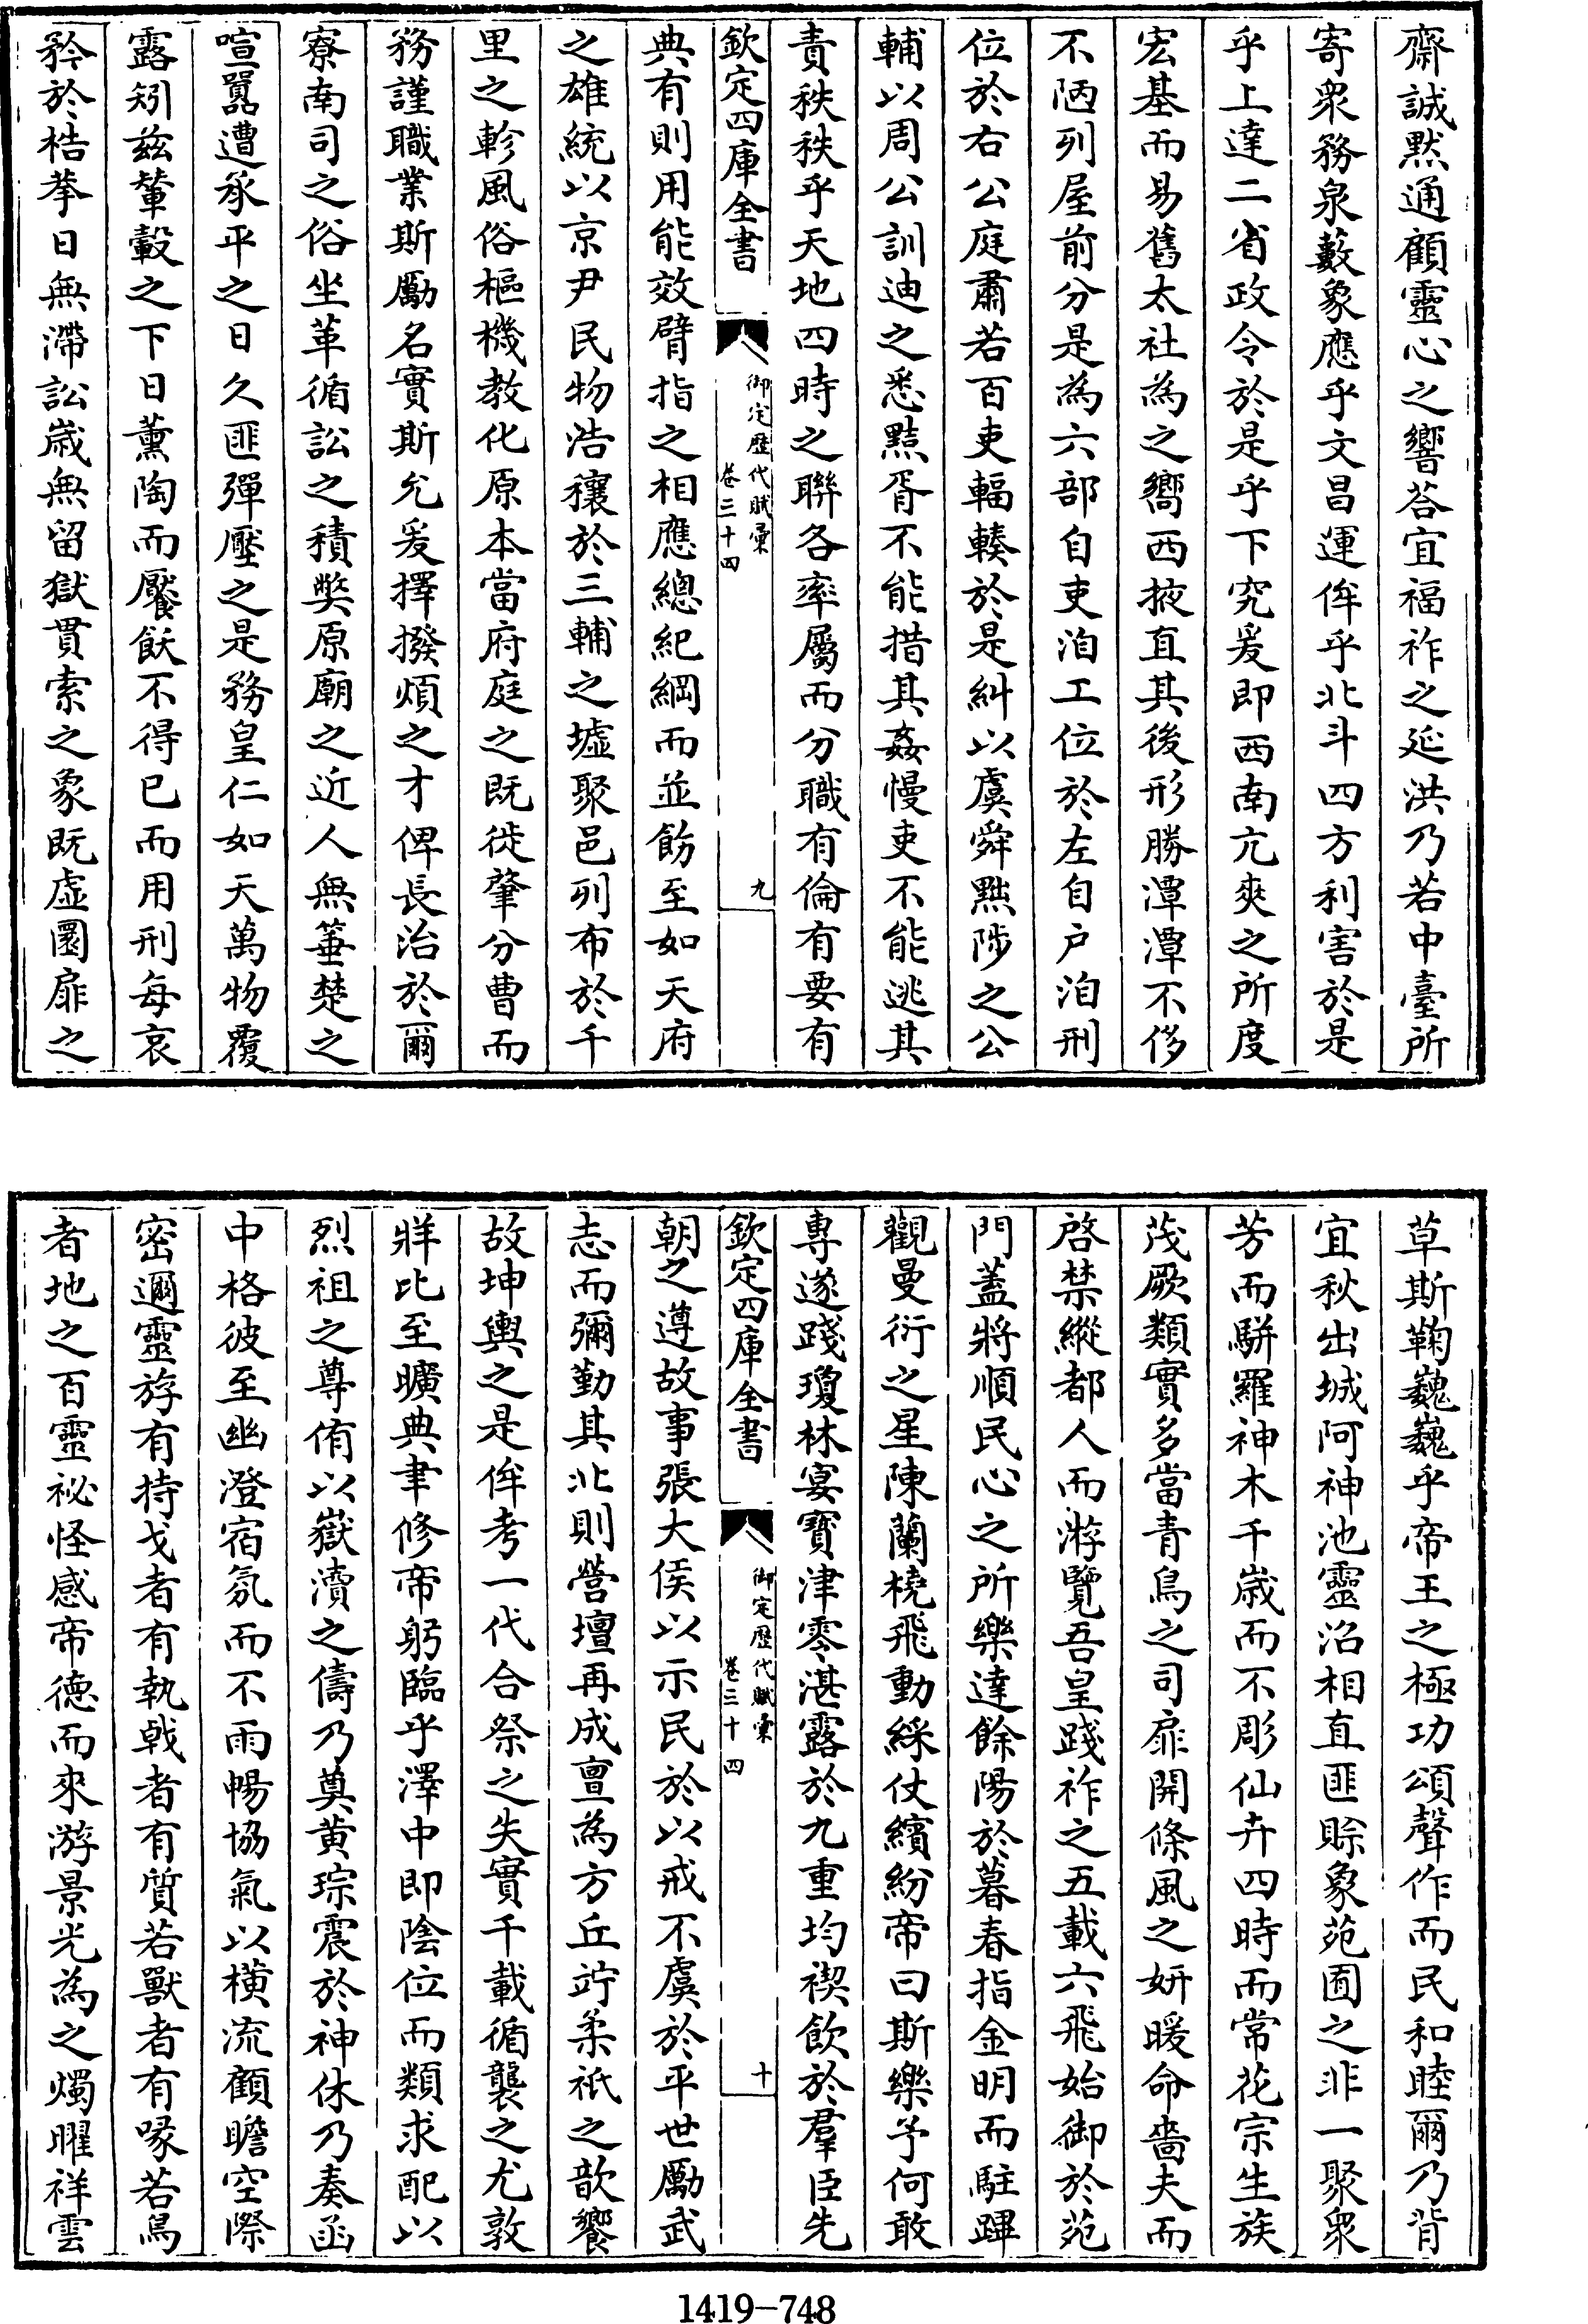 齋誠黙通顧靈心之響荅宜福祚之延洪乃若中臺所
寄衆務泉藪象應乎文昌運侔乎北斗四方利害於是
乎上達二省政令於是乎下究爰即西南亢爽之所度
宏基而易舊太社為之嚮西掖直其後形勝潭潭不侈
不陋列屋前分是為六部自吏洎工位於左自户洎刑
位於右公庭肅若百吏輻輳於是糾以虞舜黜陟之公
輔以周公訓迪之悉黠胥不能措其姦慢吏不能逃其
責秩秩乎天地四時之聯各率屬而分職有倫有要有
欽定四庫全書
御定歷代賦彙
卷三十四
九
典有則用能效臂指之相應總紀綱而並飭至如天府
之雄統以京尹民物浩穰於三輔之墟聚邑列布於千
里之軫風俗樞機教化原本當府庭之既徙肇分曹而
務謹職業斯勵名實斯允爰擇撥煩之才俾長治於爾
寮南司之俗坐革循訟之積獘原廟之近人無箠楚之
喧囂遭承平之日久匪彈壓之是務皇仁如天萬物覆
露矧兹輦轂之下日薰陶而饜飫不得已而用刑每哀
矜於梏拲日無滯訟歳無留獄貫索之象既虚圜扉之
草斯鞠巍巍乎帝王之極功頌聲作而民和睦爾乃背
宜秋出城阿神池靈沼相直匪賒象苑囿之非一聚衆
芳而駢羅神木千歳而不彫仙卉四時而常花宗生族
茂厥類實多當青鳥之司扉開條風之妍暖命嗇夫而
啓禁縱都人而游覽吾皇踐祚之五載六飛始御於苑
門蓋將順民心之所樂達餘陽於暮春指金明而駐蹕
觀曼衍之星陳蘭橈飛動綵仗繽紛帝曰斯樂予何敢
專遂踐瓊林宴寳津零湛露於九重均禊飲於羣臣先
欽定四庫全書
御定歷代賦彙
卷三十四
十
朝之遵故事張大侯以示民於以戒不虞於平世勵武
志而彌勤其北則營壇再成亶為方丘竚柔祇之歆饗
故坤輿之是侔考一代合祭之失實千載循襲之尤敦
牂比至曠典聿修帝躬臨乎澤中即陰位而類求配以
烈祖之尊侑以嶽瀆之儔乃奠黄琮震於神休乃奏函
中格彼至幽澄宿氛而不雨暢協氣以横流顧瞻空際
密邇靈游有持戈者有執戟者有質若獸者有喙若鳥
者地之百靈祕怪感帝德而來游景光為之燭曜祥雲
1419-748